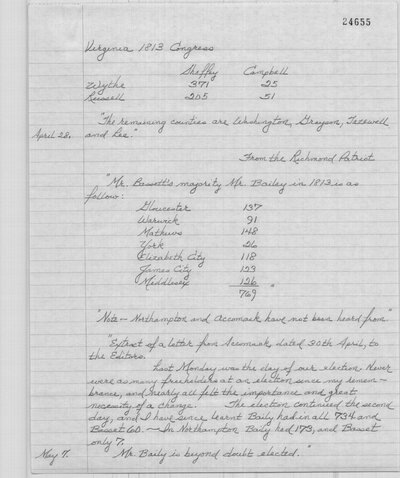 24655
Virginia 1813 Congress
Sheffey Campbell
Wythe 371 25
Russell 205 51
"The remaining counties are Washington, Grayson, Tazewell
April 28. and Lee."
From the Richmond Patriot
"Mr. Bassett's majority Mr. Bailey in 1813 is as
follow:
Gloucester 137
Warwick 91
Mathews 148
York 26
Elizabeth City 118
James City 123
Middlesex 126
769"
"Note - Northampton and Accomack have not been heard from"
"Extract of a letter from Accomack dated 30th April, to
the Editors.
Last Monday was the day of our election. Never
were as many freeholders at an election since my remem-
brance, and nearly all felt the importance and great
necessity of a change. The election continued the second
day, and I have since learnt Baily had in all 734 and
Basset 60. - In Northampton Baily had 173, and Basset
only 7.
May 7. Mr. Baily is beyond doubt elected."